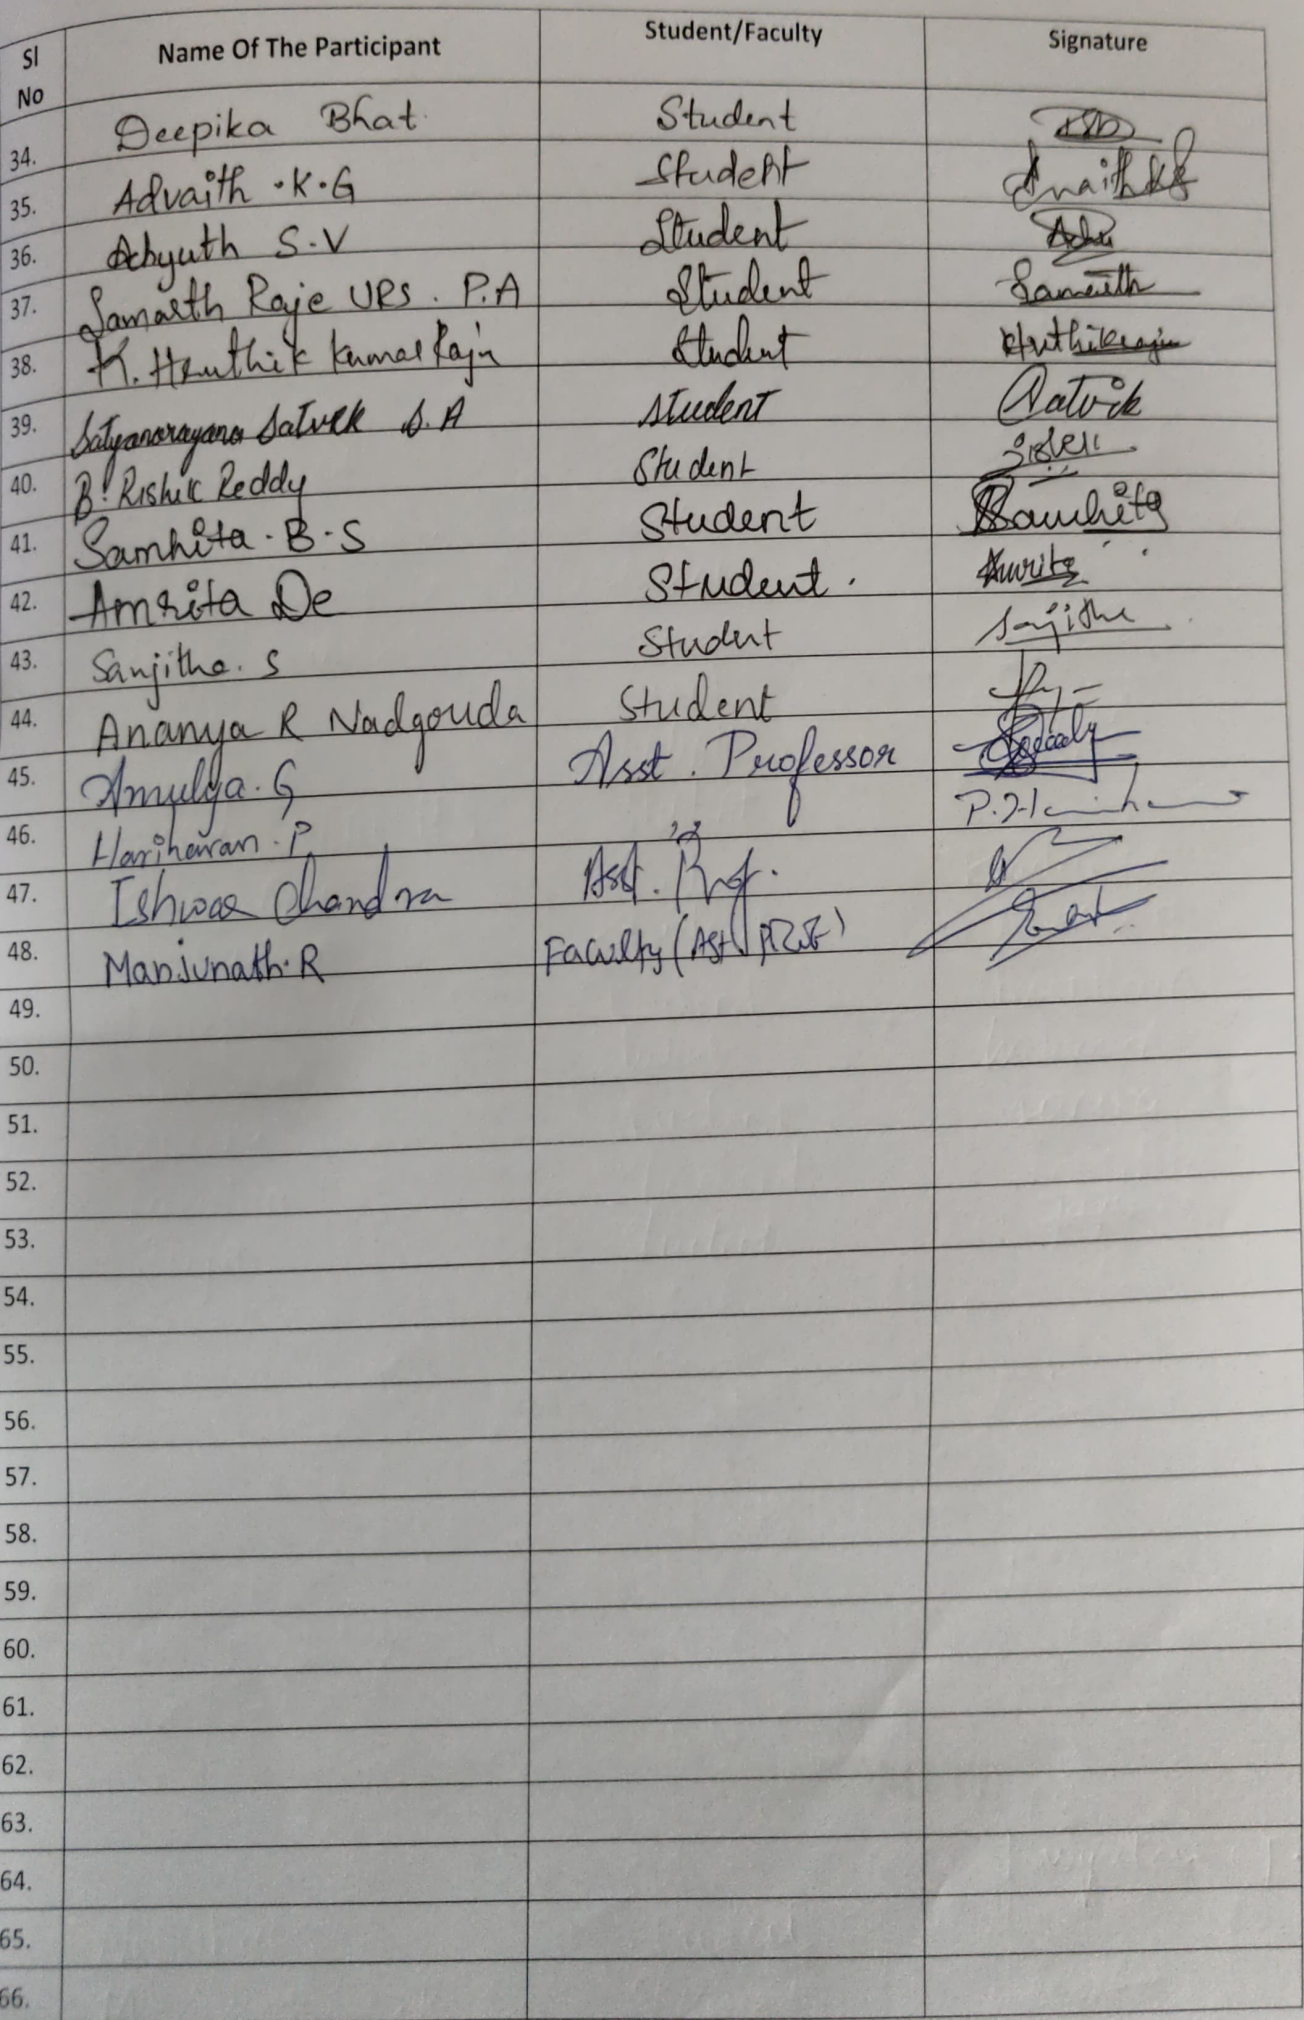 Sl No Name Of The Participant Student/Faculty Signature
34. Deepika Bhat. Student
35. Advaith .K.G Student
36. Achyuth S.V Student Achu
37. Samarth Raje URS. P.A Student Samarth
38. K. Hruthik Kumar Raju Student Hruthikraju
39. Satyanarayana Satvik S.A Student Satvik
40. B. Rishik Reddy Student
41. Samhita.B.S Student Samhita
42. Amrita De Student. Amrita
43. Sanjitha. S Student Sanjitha
44. Ananya R Nadgouda Student
45. Amulya.G Asst. Professor
46. Hariharan.P ,, P.
47. Ishwar Chandra Asst. Prof.
48. Manjunath.R Faculty (Ast
49.
50.
51.
52.
53.
54.
55.
56.
57.
58.
59.
60.
61.
62.
63.
64.
65.
66.